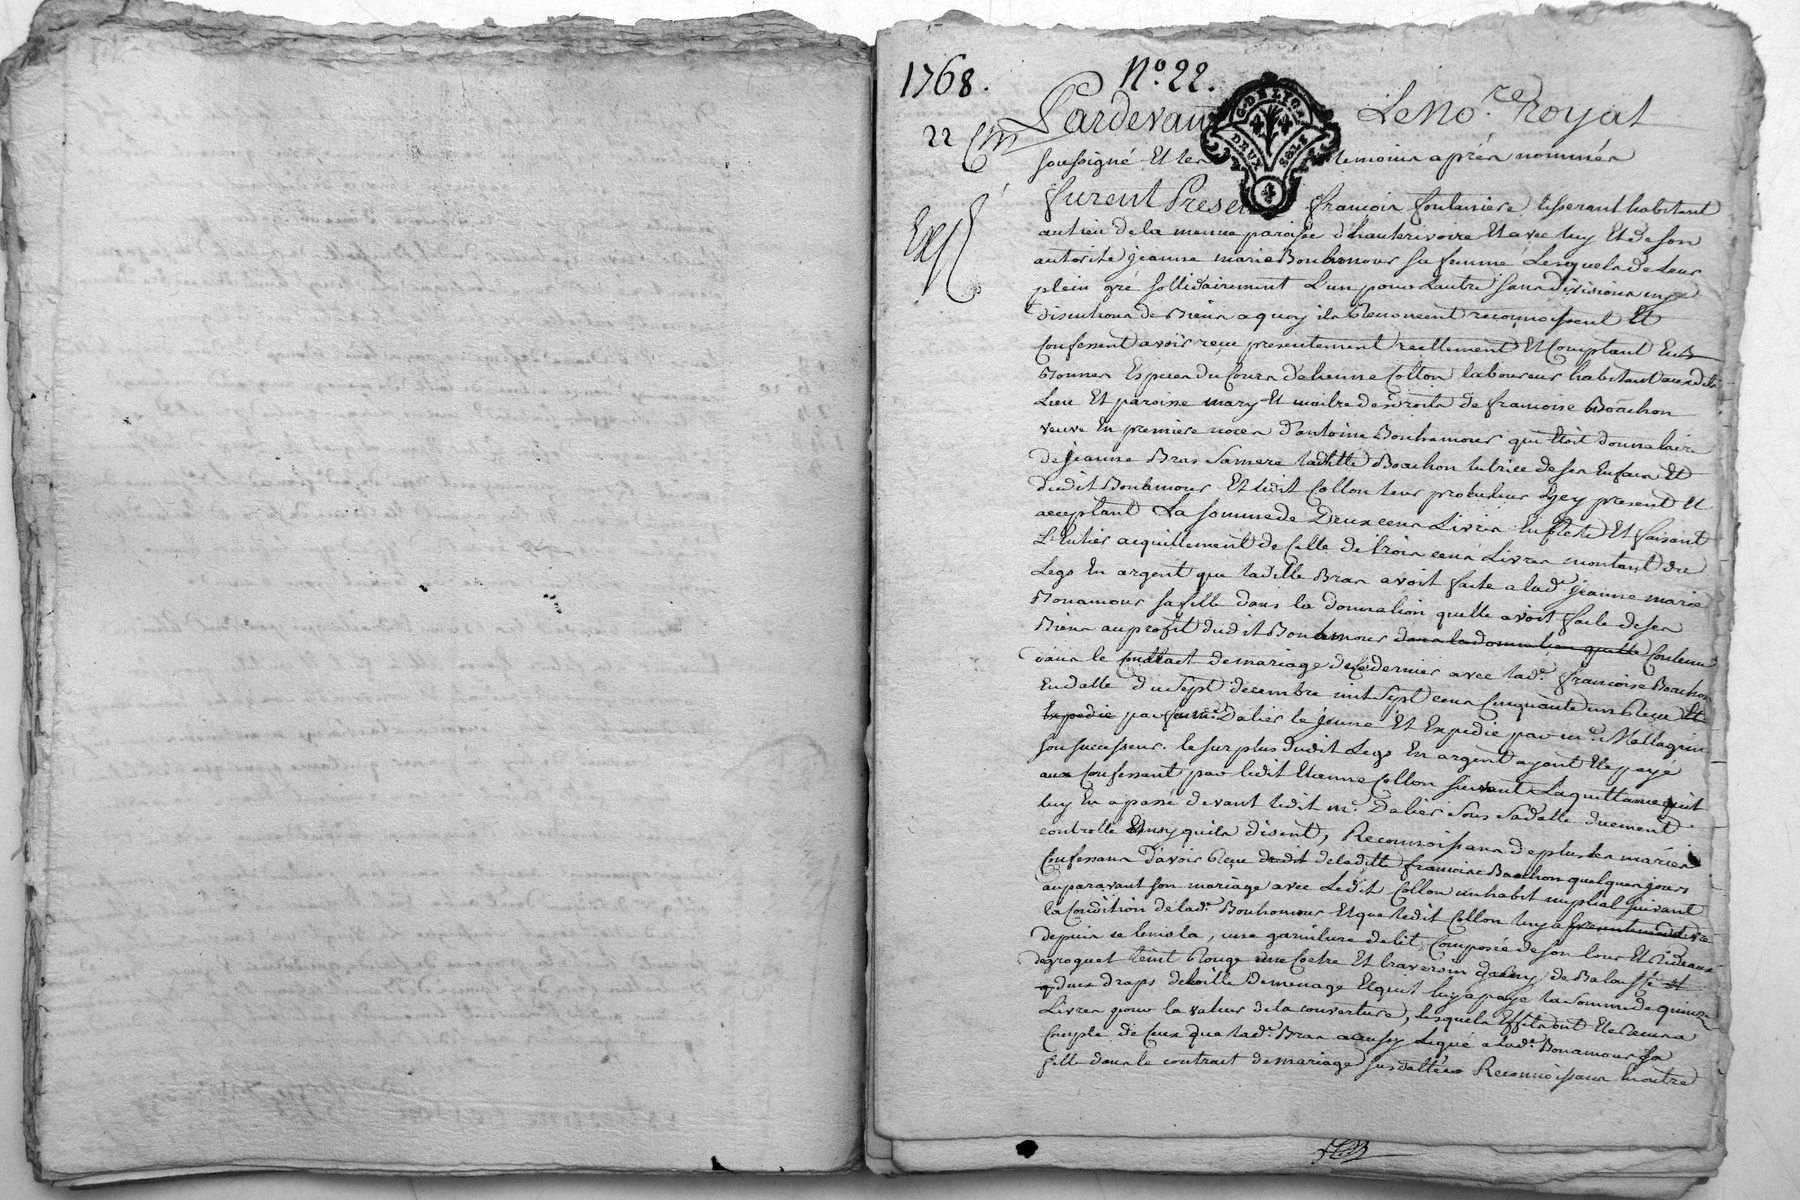 1768.
N.º 22.
22
Pardevant Le No.re royal
G. DE LYON
DEUX SOLS
4
soussigné Et les temoins aprés nommés
furent Presens françois foulaniere tisserant habitant
au lieu de la menue paroisse d'hauterivoire Et avec luy Et de son
autorité jeanne marie Bonhamour sa femme Lesquels de Leur
plein gré sollidairement L'un pour L'autre sans divisions ny
discutions de Biens a quoy ils Renoncent reconnoissent Et
Confessent avoir reçu presentement reellement Et Comptant En
Bonnes Especes du Cours d'etienne Collon laboureur habitant aud.
Lieu Et paroisse mary Et maitre des droits de francoise Boachon
veuve En premiere noces d'antoine Bonhamour qui Etoit donnataire
de jeanne Bras sa mere ladite Boachon tutrice de ses Enfans Et
dudit Bonhamour Et ledit Collon leur protuteur Icy present Et
acceptant La somme de Deux cens Livres En reste Et faisant
L'Entier acquittement de Celle de trois cens Livres montant du
Legs En argent que ladite Bras avoit faite a lad.e jeanne marie
Bonamour sa fille dans la donnation quelle avoit faite de ses
Biens au profit dudit Bonhamour dans la donnation quelle Contenue
dans le contract de mariage de ce dernier avec lad.e francoise Boachon
En datte du sept decembre mil sept cens Cinquante un Reçu Et
Expedié par feu m.e Dalier le jeune Et Expedié par m.e Mallaguin
son successeur. le surplus dudit Legs En argent ayant Eté payé
aux Confessant par ledit Etienne Collon suivant La quittance quil
luy En a passé devant ledit m.e Dalier sous sa datte duement
controllé Ainsy quils disent, Reconnoissans de plus les mariés
Confessans d'avoir Reçu dudit de ladite francoise Boachon quelques jours
auparavant son mariage avec Ledit Collon un habit nuptial suivant
la Condition de lad.e Bonhomour Et que ledit Collon luy a
depuis ce tems la, une garniture de lit Composée de son tour Et Rideaux
de groguet teint Rouge une Coetre Et traversin garny de Balouffe et
deux draps de toille de menage Et quil luy a payé la somme de quinze
Livres pour la valeur de la couverture, lesquels Effets ont Eté Remis a
Compte de Ceux que lad.e Bras a aussy Legué a lad.e Bonamour sa
fille dans le contrait de mariage susdatté Reconnoissans En outre